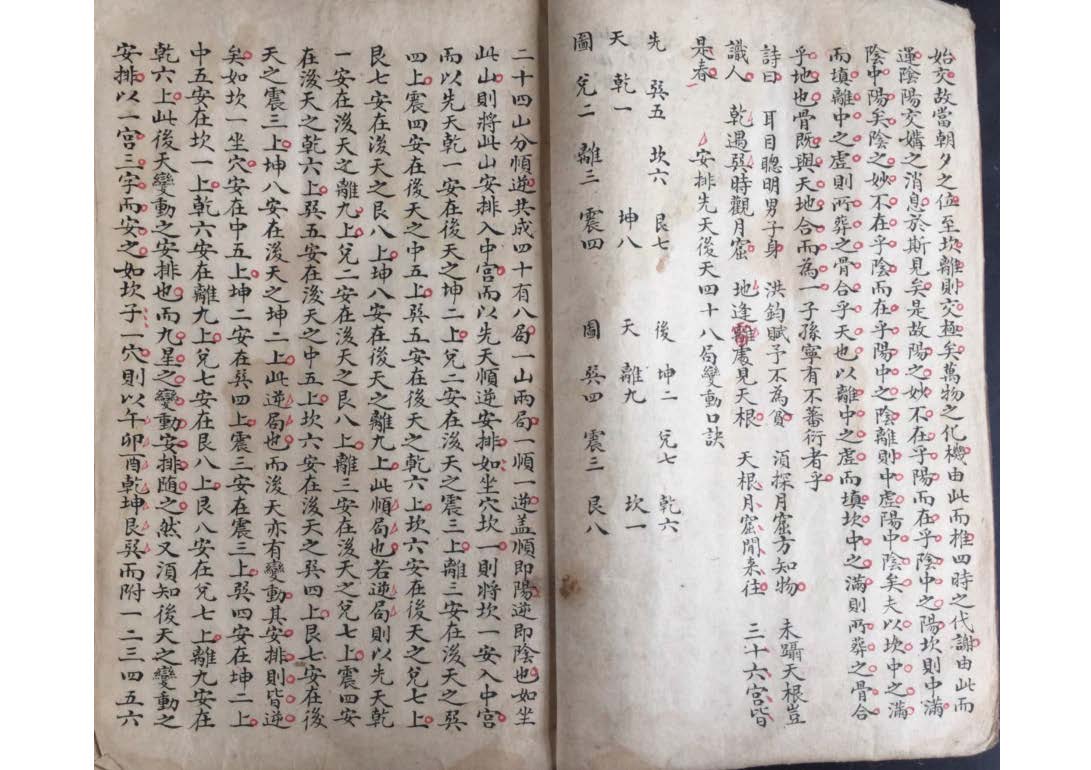 始交故當朝夕之位至坎離則交極矣萬物之化機由此而推四時之代謝由此而
運陰陽交媾之消息於斯見矣是故陽之妙不在乎陽而在乎陰中之陽坎則中滿
陰中陽矣陰之妙不在乎陰而在乎陽中之陰離則中虛陽中陰矣夫以坎中之滿
而填離中之虛則所葬之骨合乎天也以離中之虛而填坎中之滿則所葬之骨合
乎地也骨既與天地合而為一子孫寧有不蕃衍者乎
詩曰 耳目聰明男子身 洪鈞賦予不為貧 須探月窟方知物 未躡天根豈
識人 乾遇巽時觀月窟 地逢離處見天根 天根月窟閒來往 三十六宮皆
是春
安排先天後天四十八局變動口訣
先 巽五 坎六 艮七 後 坤二 兌七 乾六
天 乾一 坤八 天 離九 坎一
圖 兌二 離三 震四 圖 巽四 震三 艮八
二十四山分順逆共成四十有八局一山兩局一順一逆蓋順即陽逆即陰也如坐
此山則將此山安排入中宮而以先天順逆安排如坐穴坎一則將坎一安入中宮
而以先天乾一安在後天之坤二上兌二安在後天之震三上離三安在後天之巽
四上震四安在後天之中五上巽五安在後天之乾六上坎六安在後天之兌七上
艮七安在後天之艮八上坤八安在後天之離九上此順局也若逆局則以先天乾
一安在後天之離九上兌二安在後天之艮八上離三安在後天之兌七上震四安
在後天之乾六上巽五安在後天之中五上坎六安在後天之巽四上艮七安在後
天之震三上坤八安在後天之坤二上此逆局也而後天亦有變動其安排則皆逆
矣如坎一坐穴安在中五上坤二安在巽四上震三安在震三上巽四安在坤二上
中五安在坎一上乾六安在離九上兌七安在艮八上艮八安在兌七上離九安在
乾六上此後天變動之安排也而九星之變動安排隨之然又須知後天之變動之
安排以一宮三字而安之如坎子一穴則以午卯酉乾坤艮巽而附一二三四五六